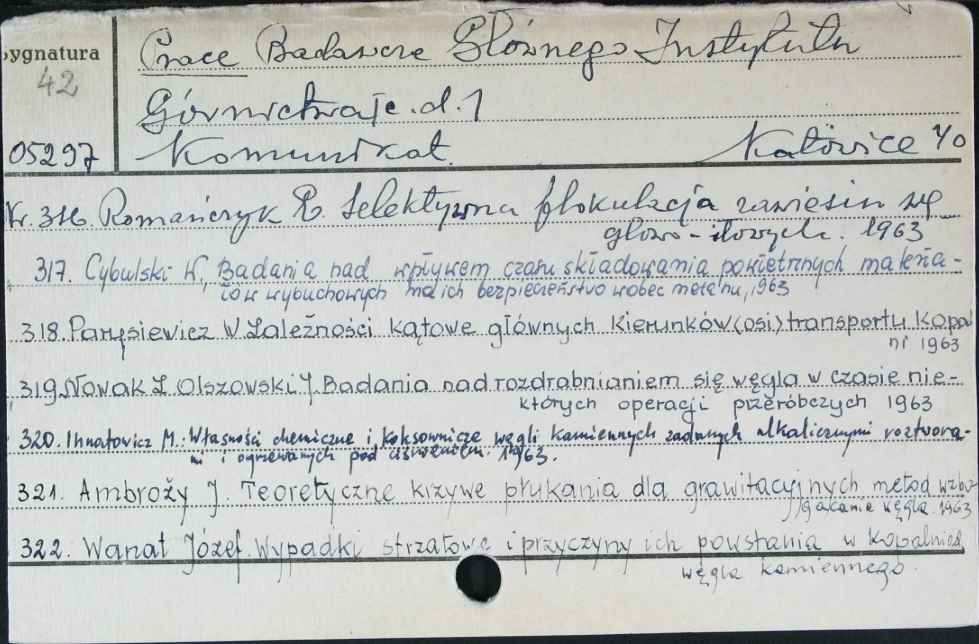 Sygnatura
42
05297
Prace Badawcze Głównego Instytutu
Górnictwa
Komunikat. Katowice
Nr. 316. Romańczyk E. Selektywna flokulacja zawiesin wę
glowo-iłowych. 1963
317. Cybulski W., Badania nad wpływem czasu składowania powietrznych materia-
łów wybuchowych na ich bezpieczeństwo wobec metanu, 1963
318. Parysiewicz W Zależności kątowe głównych kierunków (osi) transportu kopal
ni 1963
319. Nowak Z. Olszowski J. Badania nad rozdrabnianiem się węgla w czasie nie-
których operacji przeróbczych 1963
320. Ihnatowicz M.: Własności chemiczne i koksownicze węgli kamiennych zadanych alkalicznymi roztwora-
mi i ogrzewanych pod ciśnieniem. 1963.
321. Ambroży J. Teoretyczne krzywe płukania dla grawitacyjnych metod wzbo-
gacania węgla. 1963
322. Wanat Józef. Wypadki strzałowe i przyczyny ich powstania w kopalniach
węgla kamiennego.